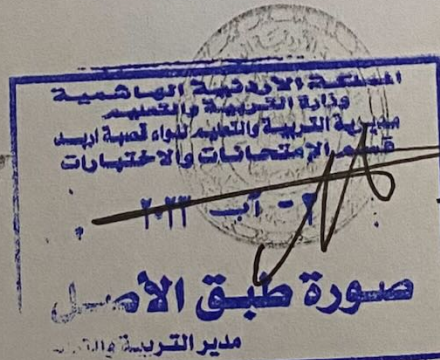 المملكة الاردنية الهاشمية
وزارة التربية والتعليم
مديرية التربية والتعليم للواء قصبة اربد
قسم الامتحانات والاختبارات
٢ - آب ٢٠٢٣
صورة طبق الأصل
مدير التربية